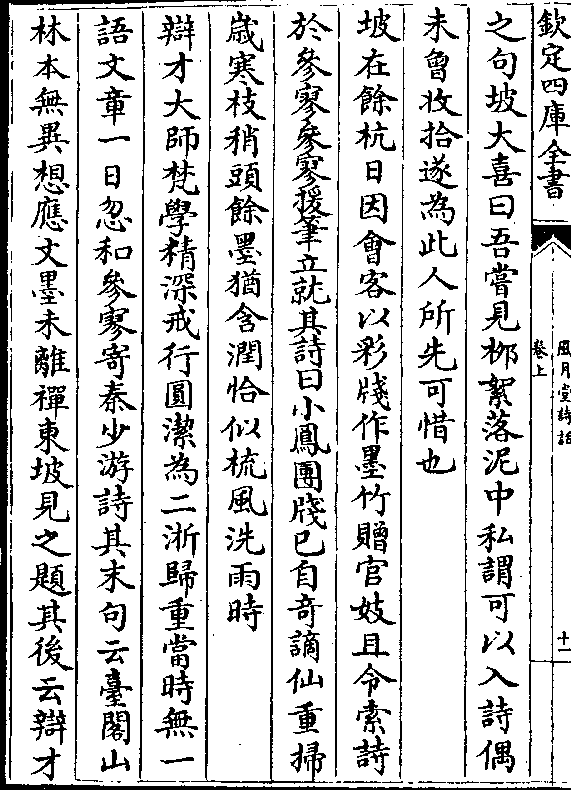 欽定四庫全書
風月堂詩話
卷上
十一
之句坡大喜曰吾嘗見柳絮落泥中私謂可以入詩偶
未曾收拾遂為此人所先可惜也
坡在餘杭日因會客以彩牋作墨竹贈官妓且令索詩
於參寥參寥援筆立就其詩曰小鳳團牋已自奇謫仙重掃
歲寒枝稍頭餘墨猶含潤恰似梳風洗雨時
辯才大師梵學精深戒行圓潔為二浙歸重當時無一
語文章一日忽和參寥寄秦少游詩其末句云臺閣山
林本無異想應文墨未離禪東坡見之題其後云辯才